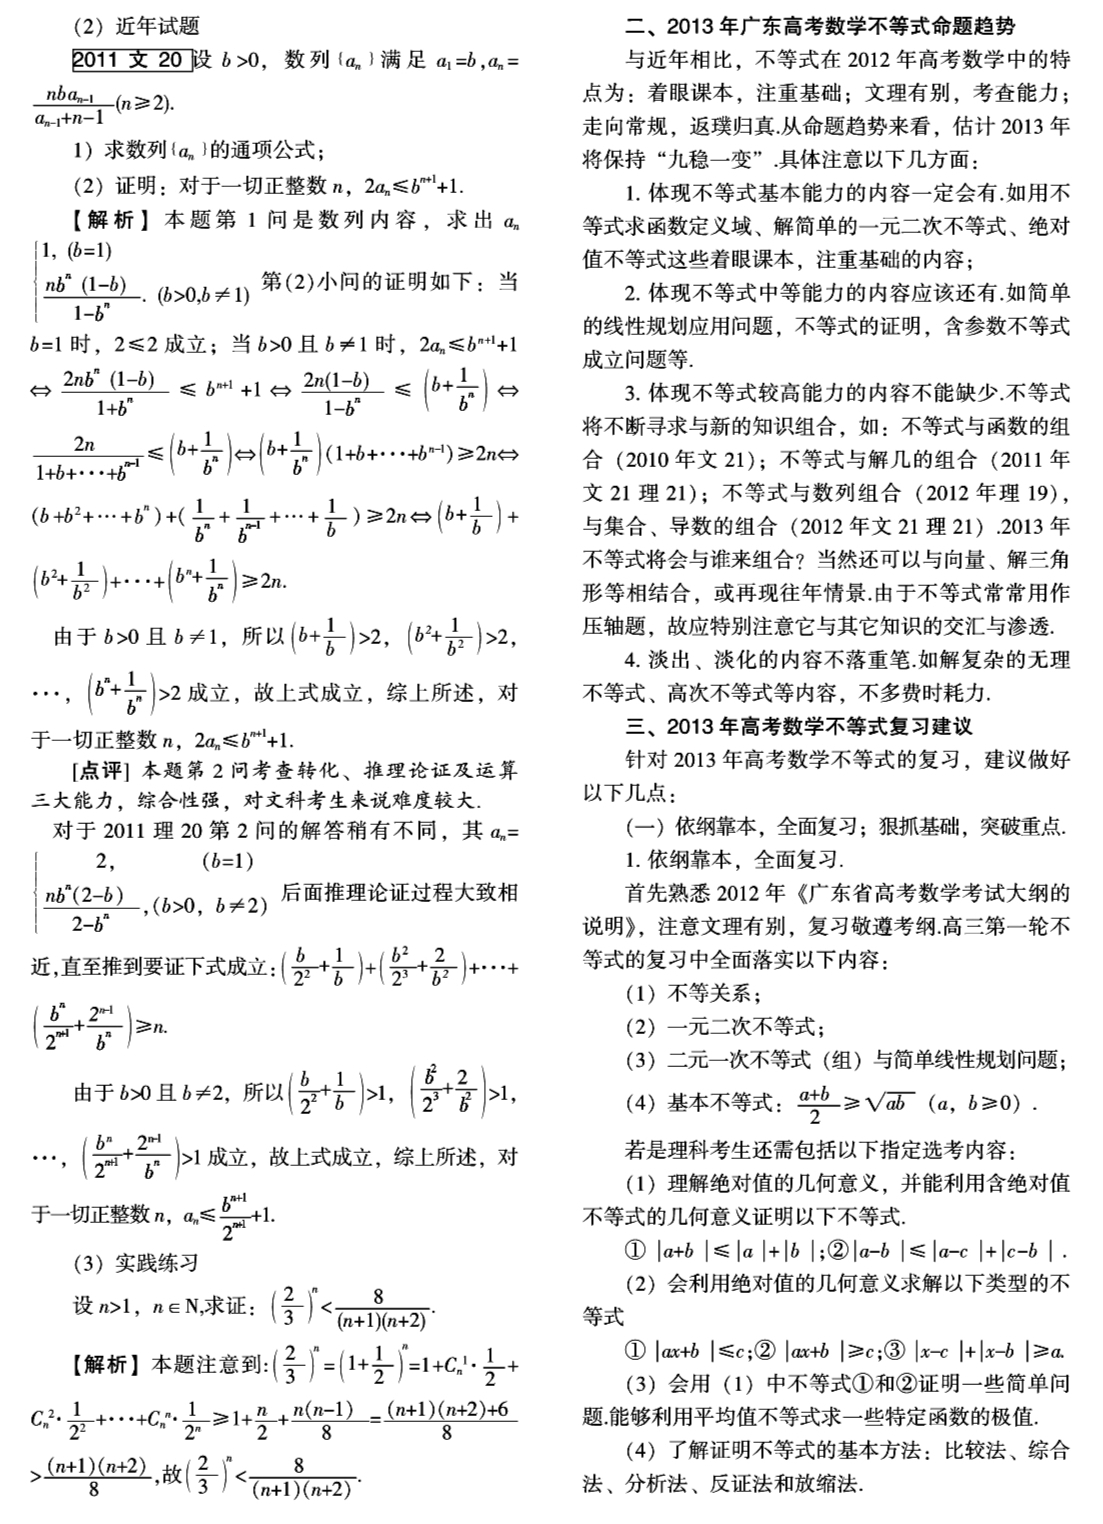 (2) 近年试题
2011 文 20 设 b>0, 数列{aₙ}满足 a₁=b,aₙ=
nbaₙ₋₁/(aₙ₋₁+n-1) (n≥2).
1) 求数列{aₙ}的通项公式;
(2) 证明: 对于一切正整数 n, 2aₙ≤bⁿ⁺¹+1.
【解析】本题第 1 问是数列内容, 求出 aₙ
{1, (b=1)
nbⁿ(1-b)/(1-bⁿ). (b>0,b≠1) 第(2)小问的证明如下: 当
b=1 时, 2≤2 成立; 当 b>0 且 b≠1 时, 2aₙ≤bⁿ⁺¹+1
⇔ 2nbⁿ(1-b)/(1+bⁿ) ≤ bⁿ⁺¹+1 ⇔ 2n(1-b)/(1-bⁿ) ≤ (b+1/bⁿ) ⇔
2n/(1+b+···+bⁿ⁻¹) ≤(b+1/bⁿ)⇔(b+1/bⁿ)(1+b+···+bⁿ⁻¹)≥2n⇔
(b+b²+···+bⁿ)+(1/bⁿ+1/bⁿ⁻¹+···+1/b)≥2n⇔(b+1/b)+
(b²+1/b²)+···+(bⁿ+1/bⁿ)≥2n.
由于 b>0 且 b≠1, 所以(b+1/b)>2, (b²+1/b²)>2,
···, (bⁿ+1/bⁿ)>2 成立, 故上式成立, 综上所述, 对
于一切正整数 n, 2aₙ≤bⁿ⁺¹+1.
[点评] 本题第 2 问考查转化、推理论证及运算
三大能力, 综合性强, 对文科考生来说难度较大.
对于 2011 理 20 第 2 问的解答稍有不同, 其 aₙ=
{2, (b=1)
nbⁿ(2-b)/(2-bⁿ),(b>0, b≠2) 后面推理论证过程大致相
近,直至推到要证下式成立:(b/2²+1/b)+(b²/2³+2/b²)+···+
(bⁿ/2ⁿ⁺¹+2ⁿ⁻¹/bⁿ)≥n.
由于 b>0 且 b≠2, 所以(b/2²+1/b)>1, (b²/2³+2/b²)>1,
···, (bⁿ/2ⁿ⁺¹+2ⁿ⁻¹/bⁿ)>1 成立, 故上式成立, 综上所述, 对
于一切正整数 n, aₙ≤bⁿ⁺¹/2ⁿ⁺¹+1.
(3) 实践练习
设 n>1, n∈N,求证: (2/3)ⁿ<8/((n+1)(n+2)).
【解析】本题注意到:(2/3)ⁿ=(1+1/2)ⁿ=1+Cₙ¹·1/2+
Cₙ²·1/2²+···+Cₙⁿ·1/2ⁿ≥1+n/2+n(n-1)/8=((n+1)(n+2)+6)/8
>(n+1)(n+2)/8,故(2/3)ⁿ<8/((n+1)(n+2)).
二、2013 年广东高考数学不等式命题趋势
与近年相比, 不等式在 2012 年高考数学中的特
点为: 着眼课本, 注重基础; 文理有别, 考查能力;
走向常规, 返璞归真.从命题趋势来看, 估计 2013 年
将保持“九稳一变”.具体注意以下几方面:
1. 体现不等式基本能力的内容一定会有.如用不
等式求函数定义域、解简单的一元二次不等式、绝对
值不等式这些着眼课本, 注重基础的内容;
2. 体现不等式中等能力的内容应该还有.如简单
的线性规划应用问题, 不等式的证明, 含参数不等式
成立问题等.
3. 体现不等式较高能力的内容不能缺少.不等式
将不断寻求与新的知识组合, 如: 不等式与函数的组
合 (2010 年文 21); 不等式与解几的组合 (2011 年
文 21 理 21); 不等式与数列组合 (2012 年理 19),
与集合、导数的组合 (2012 年文 21 理 21) .2013 年
不等式将会与谁来组合? 当然还可以与向量、解三角
形等相结合, 或再现往年情景.由于不等式常常用作
压轴题, 故应特别注意它与其它知识的交汇与渗透.
4. 淡出、淡化的内容不落重笔.如解复杂的无理
不等式、高次不等式等内容, 不多费时耗力.
三、2013 年高考数学不等式复习建议
针对 2013 年高考数学不等式的复习, 建议做好
以下几点:
(一) 依纲靠本, 全面复习; 狠抓基础, 突破重点.
1. 依纲靠本, 全面复习.
首先熟悉 2012 年《广东省高考数学考试大纲的
说明》, 注意文理有别, 复习敬遵考纲.高三第一轮不
等式的复习中全面落实以下内容:
(1) 不等关系;
(2) 一元二次不等式;
(3) 二元一次不等式 (组) 与简单线性规划问题;
(4) 基本不等式: (a+b)/2≥√ab (a, b≥0) .
若是理科考生还需包括以下指定选考内容:
(1) 理解绝对值的几何意义, 并能利用含绝对值
不等式的几何意义证明以下不等式.
① |a+b|≤|a|+|b|;②|a-b|≤|a-c|+|c-b| .
(2) 会利用绝对值的几何意义求解以下类型的不
等式
① |ax+b|≤c;② |ax+b|≥c;③ |x-c|+|x-b|≥a.
(3) 会用 (1) 中不等式①和②证明一些简单问
题.能够利用平均值不等式求一些特定函数的极值.
(4) 了解证明不等式的基本方法: 比较法、综合
法、分析法、反证法和放缩法.